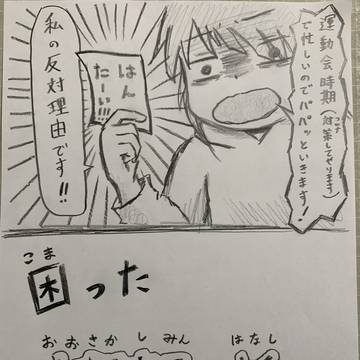 運動会時期(対策してやります)
で忙しいのでパパッといきます!
はん
たーい!!!
私の反対理由です!!
こま
困った
おおさかしみん はなし